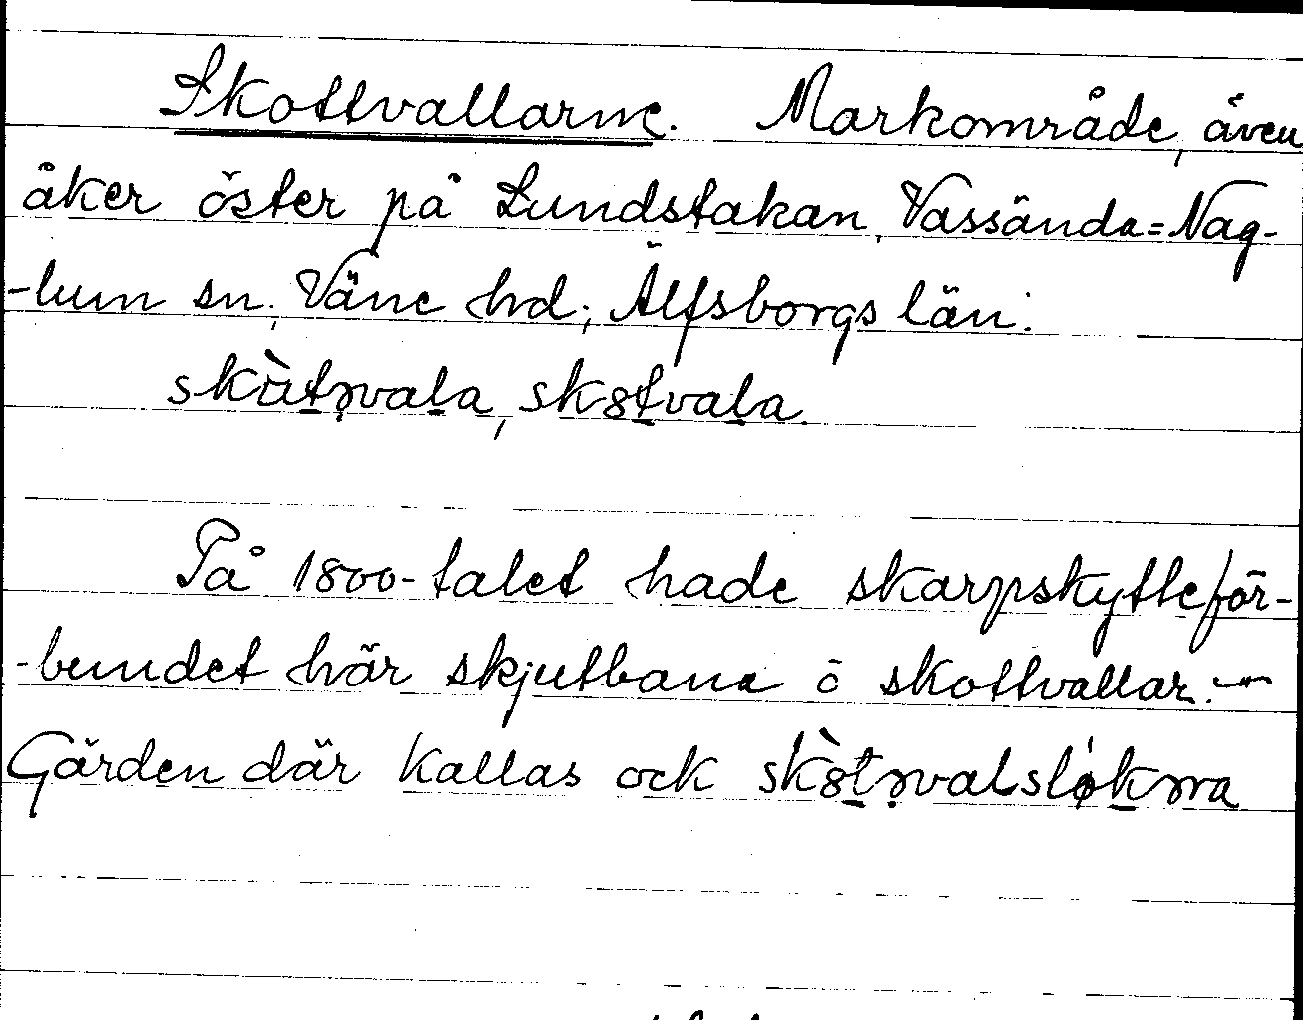 Skottvallarne. Markområde, även
åker öster på Lundstakan, Vassända=Nag-
-lum sn, Väne hd; Älfsborgs län.
skùtəvala, sk8tvala.
På 1800-talet hade skarpskytteför-
-bundet här skjutbana ö skottvallar. —
Gärden där kallas ock sk8̀təvalsløkəra